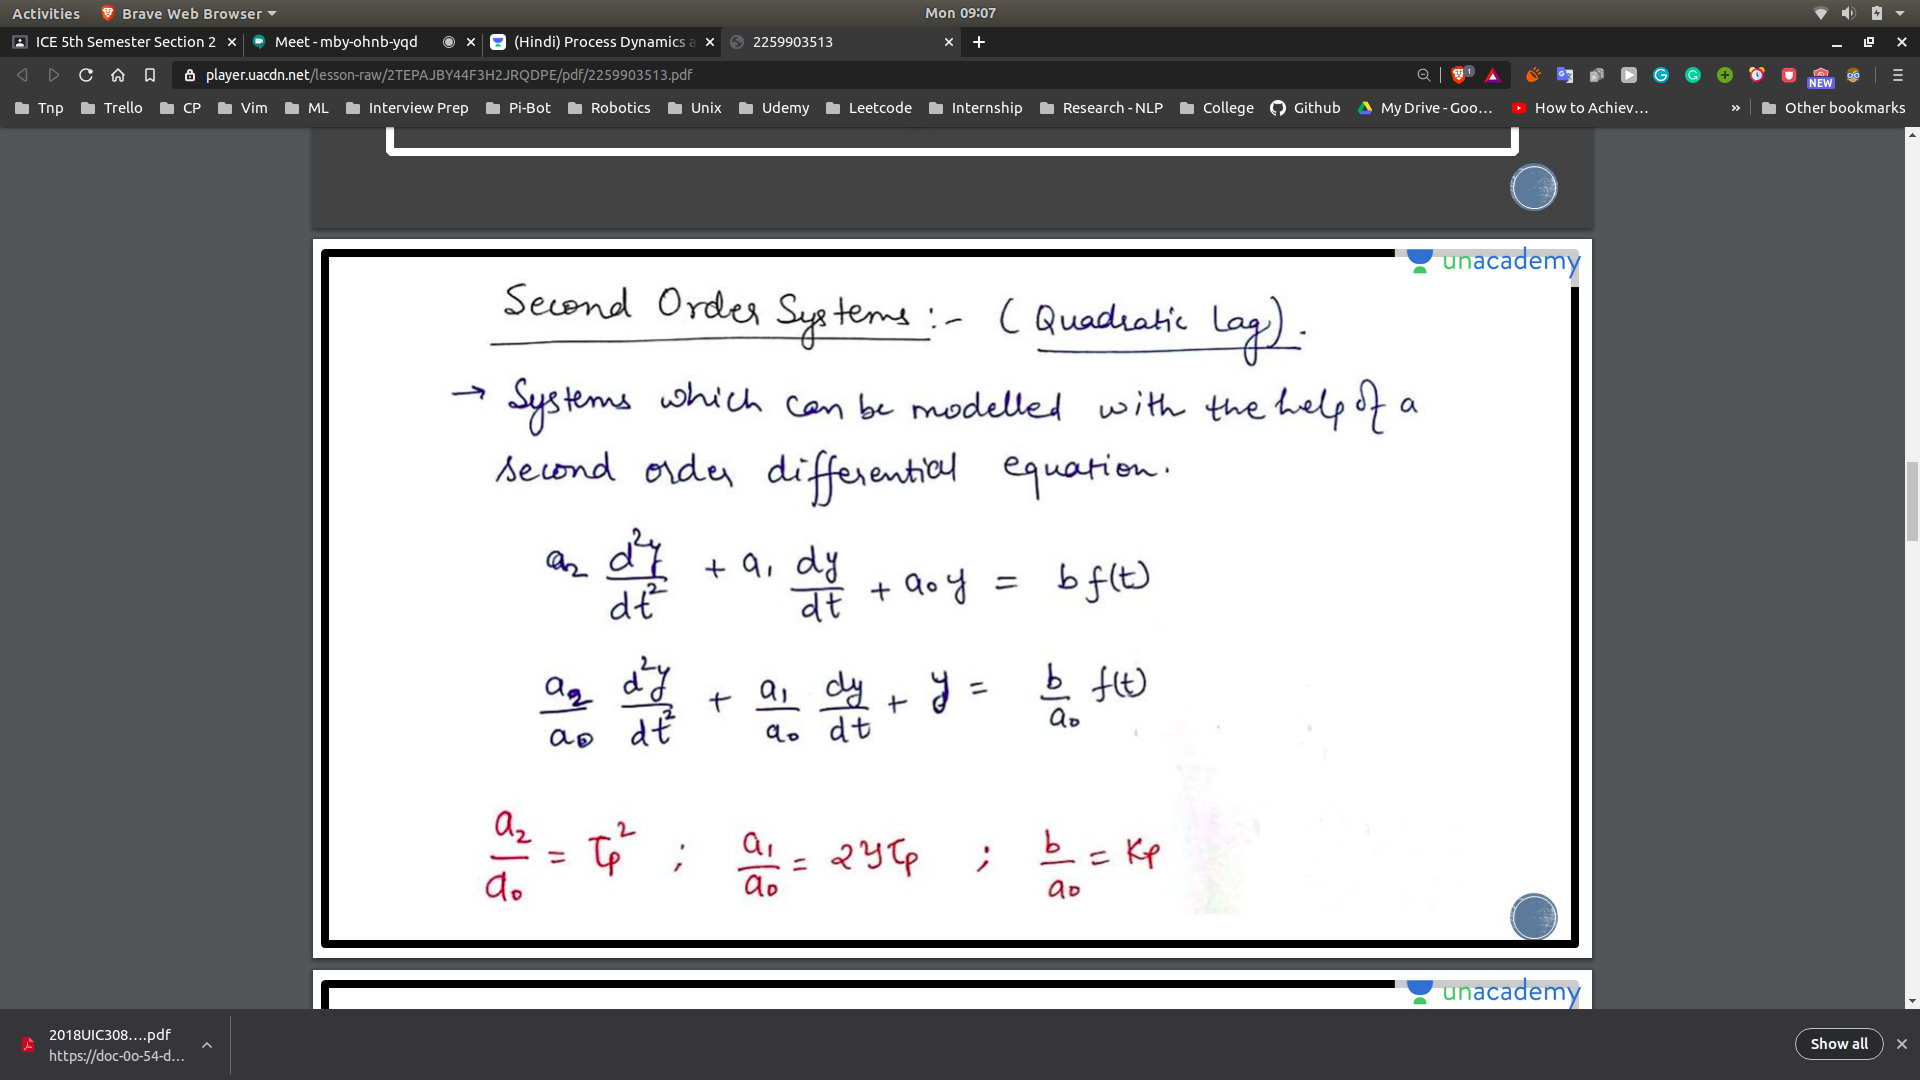 Activities Brave Web Browser Mon 09:07
ICE 5th Semester Section 2 Meet - mby-ohnb-yqd (Hindi) Process Dynamics a 2259903513
player.uacdn.net/lesson-raw/2TEPAJBY44F3H2JRQDPE/pdf/2259903513.pdf 1 NEW
Tnp Trello CP Vim ML Interview Prep Pi-Bot Robotics Unix Udemy Leetcode Internship Research - NLP College Github My Drive - Goo... How to Achiev... » Other bookmarks
unacademy
Second Order Systems :- (Quadratic Lag).
→ Systems which can be modelled with the help of a
second order differential equation.
a₂ d²y/dt² + a₁ dy/dt + a₀y = b f(t)
a₂/a₀ d²y/dt² + a₁/a₀ dy/dt + y = b/a₀ f(t)
a₂/a₀ = τp² ; a₁/a₀ = 2ζτp ; b/a₀ = Kp
unacademy
2018UIC308....pdf
https://doc-0o-54-d...
Show all